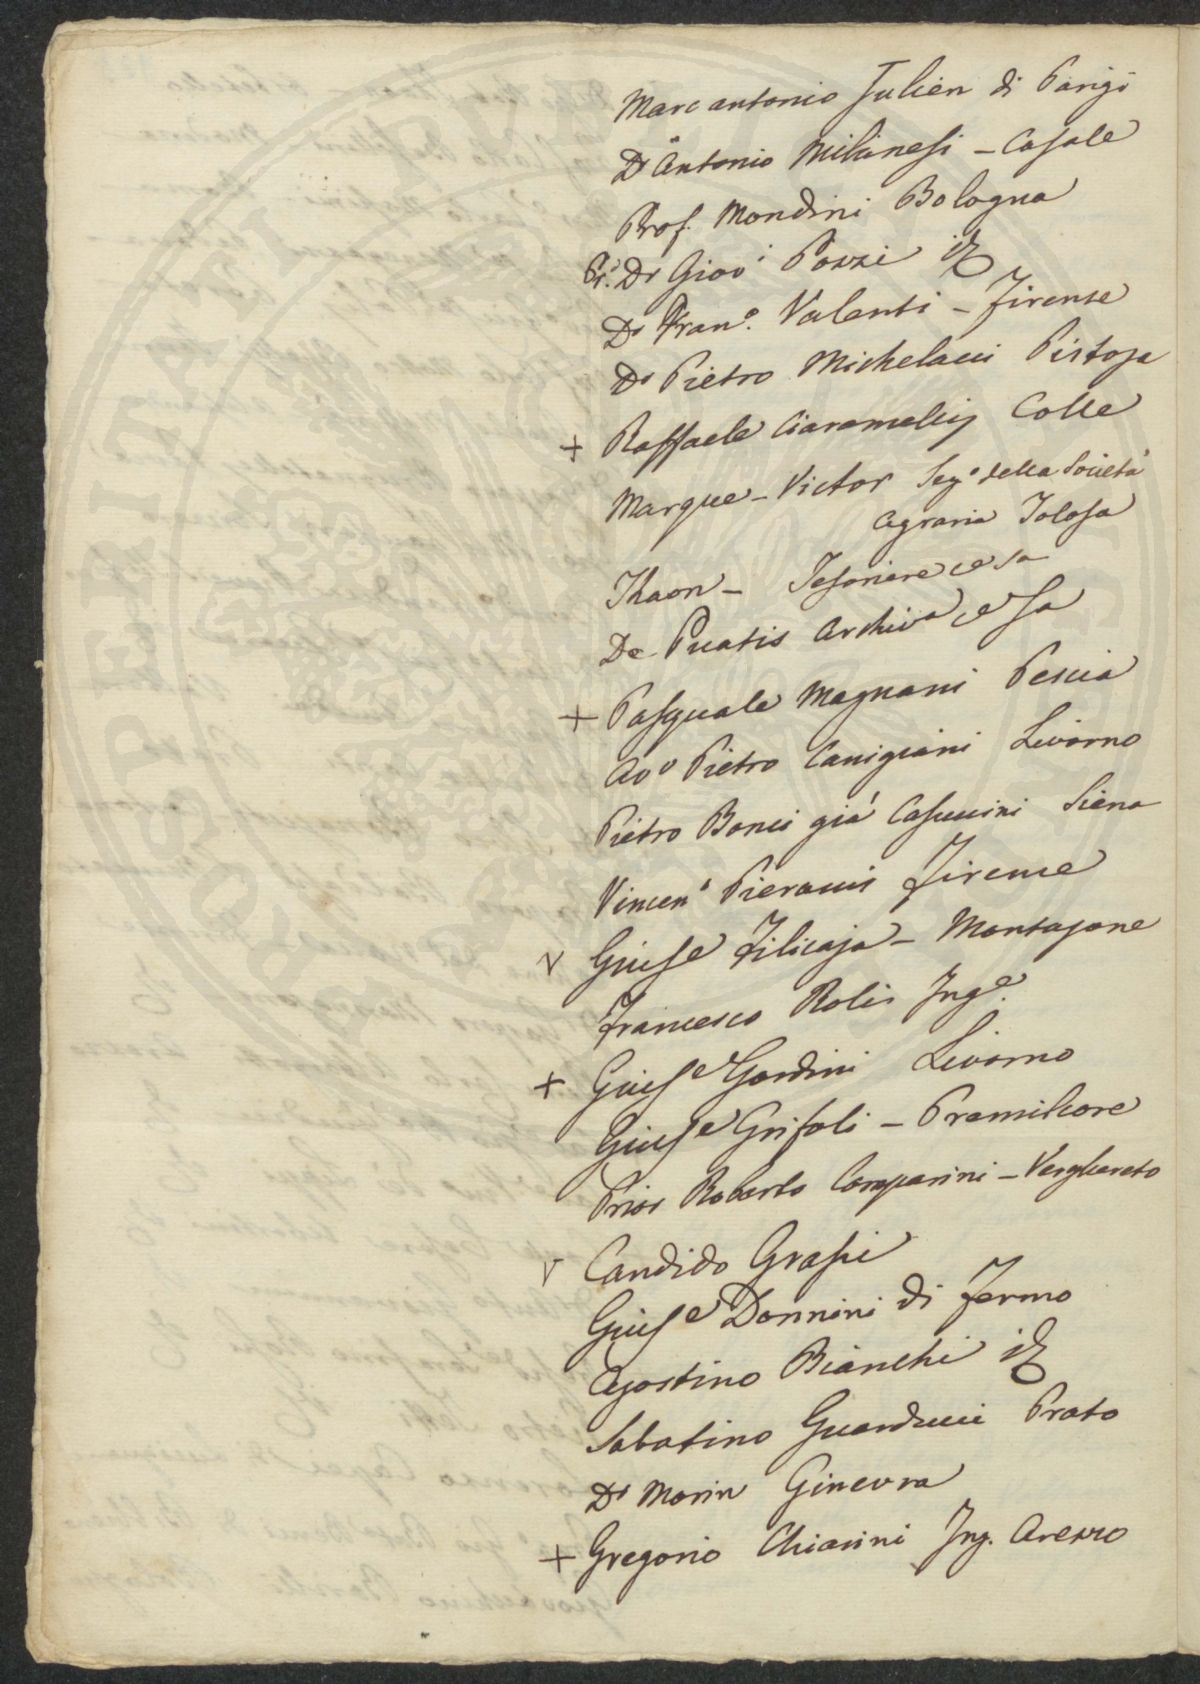 Marcantonio Julien di Parigi
Dr Antonio Milanesi - Casale
Prof. Mondini Bologna
Pr. Dr Giov.i Pozzi id
Dr Fran.o Valenti - Firenze
Dr Pietro Michelacci Pistoja
+ Raffaele Ciaramelli Colle
Marque - Victor Seg.o della Società
Agraria Tolosa
Thaon - Tesoriere
De Puatis Archiv.a
+ Pasquale Magnani Pescia
Avv Pietro Canigiani Livorno
Pietro Bonci già Casuccini Siena
Vincen.o Pieracci Firenze
V Giuse Filicaja - Montajone
Francesco Rolis Inge.
+ Giuse Gordini Livorno
Giuse Grifoli - Premilcore
Prior Roberto Comparini - Verghereto
V Candido Grassi
Giuse Donnini di Fermo
Agostino Bianchi id
Sabatino Guarducci Prato
Dr Morin Ginevra
+ Gregorio Chiarini Ing. Arezzo